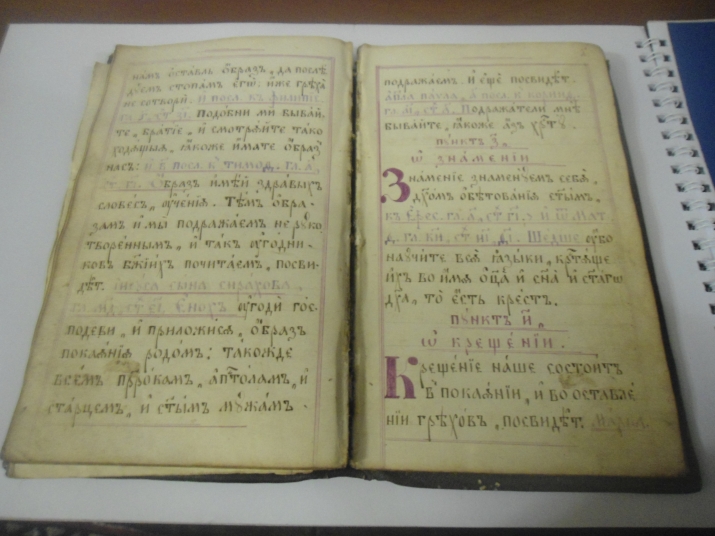 намъ ѡставль ѻ҆бразъ, да послѣ
дꙋемъ стопамъ єгѡ̀: и҆же грѣха̀
не сотворѝ. и посл. къ филипп.
Подобни ми быва́й
те, братїе, и смотрѧ́йте тако
ходѧщыѧ, ꙗ҆коже и҆мате ѻ҆браз
насъ: и҆ в҃ посл. къ тимоѳ. гл. а҃,
ст. г҃і, ѻ҆бразъ и҆мѣ́й здравыхъ
словесъ, ѹ҆че́нїѧ. Тѣ́мъ ѻ҆бра-
замъ и҆ мы подража́емъ не рꙋко
творе́ннымъ, и҆ такъ ѹ҆го́дни-
ковъ бж҃їихъ почита́емъ, посви-
дѣт. і҆исꙋса сына сирахова.
гл. м҃д, ст. є҃і, Є҆но́хъ ѹ҆годѝ гос-
подеви, и҆ приложи́сѧ, ѻ҆́бразъ
покаѧ́нїѧ родо́мъ: такожде
всѣ́мъ прⷪ҇рокамъ, а҆п҃толамъ, и҆
ста́рцемъ, и҆ ст҃ы́мъ мꙋжа́мъ
подража́емъ. и҆ є҆щѐ посвидѣ́т.
а҆п҃ла па́ѵла, а҃ посл. к корин.
гл. Подража́тели мнѣ̀
быва́йте, ꙗ҆коже а҆зъ хрⷭ҇тꙋ̀.
пꙋ́нктъ з҃.
ѡ҆ зна́менїи
Зна́менїе зна́менꙋемъ себѧ̀,
дх҃омъ ѡ҆бѣтова́нїѧ ст҃ы́мъ,
къ Е҆фес. гл. а҃, ст. г҃і, и҆ ѿ Мат.
гл. к҃и, ст. Ше́дше ѹ҆́бо
наꙋчи́те всѧ̀ ꙗ҆зы́ки, крⷭ҇тѧ́ще
и҆́хъ во и҆́мѧ ѻ҆ц҃а̀ и҆ сн҃а и҆ ст҃а́гѡ
дх҃а, то̀ є҆́сть кре́стъ.
пꙋ́нктъ и҃.
ѡ҆ креще́нїи.
Креще́нїе на́ше состои́тъ
в покаѧ́нїи, и҆ во ѡ҆ставле́
нїи грѣхо́въ, посвидѣ́т. Ма́рка.